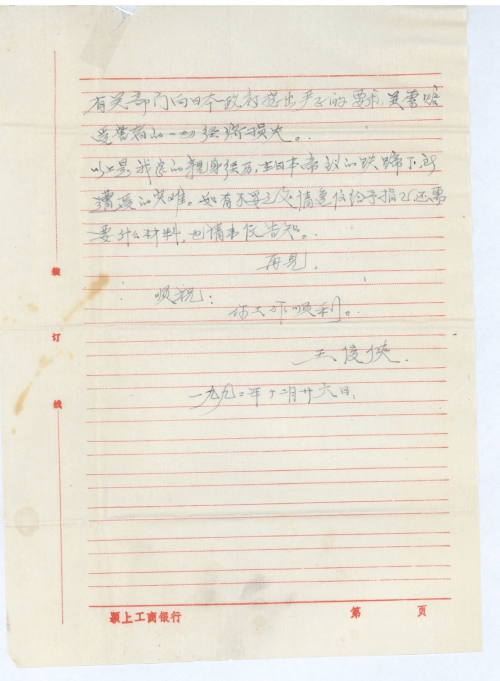 有关部门向日本政府提出严正的要求,并需赔
受害者的一切经济损失。
以上是我家的亲身经历,在日本帝的铁蹄下所
遭受的灾难。如有不妥之处请复信给予指正还需
要什么材料,也请来信告知。
再见.
顺祝:
你工作顺利。
王俊侠.
一九九二年十二月廿六日.
装
订
线
颍上工商银行 第 页